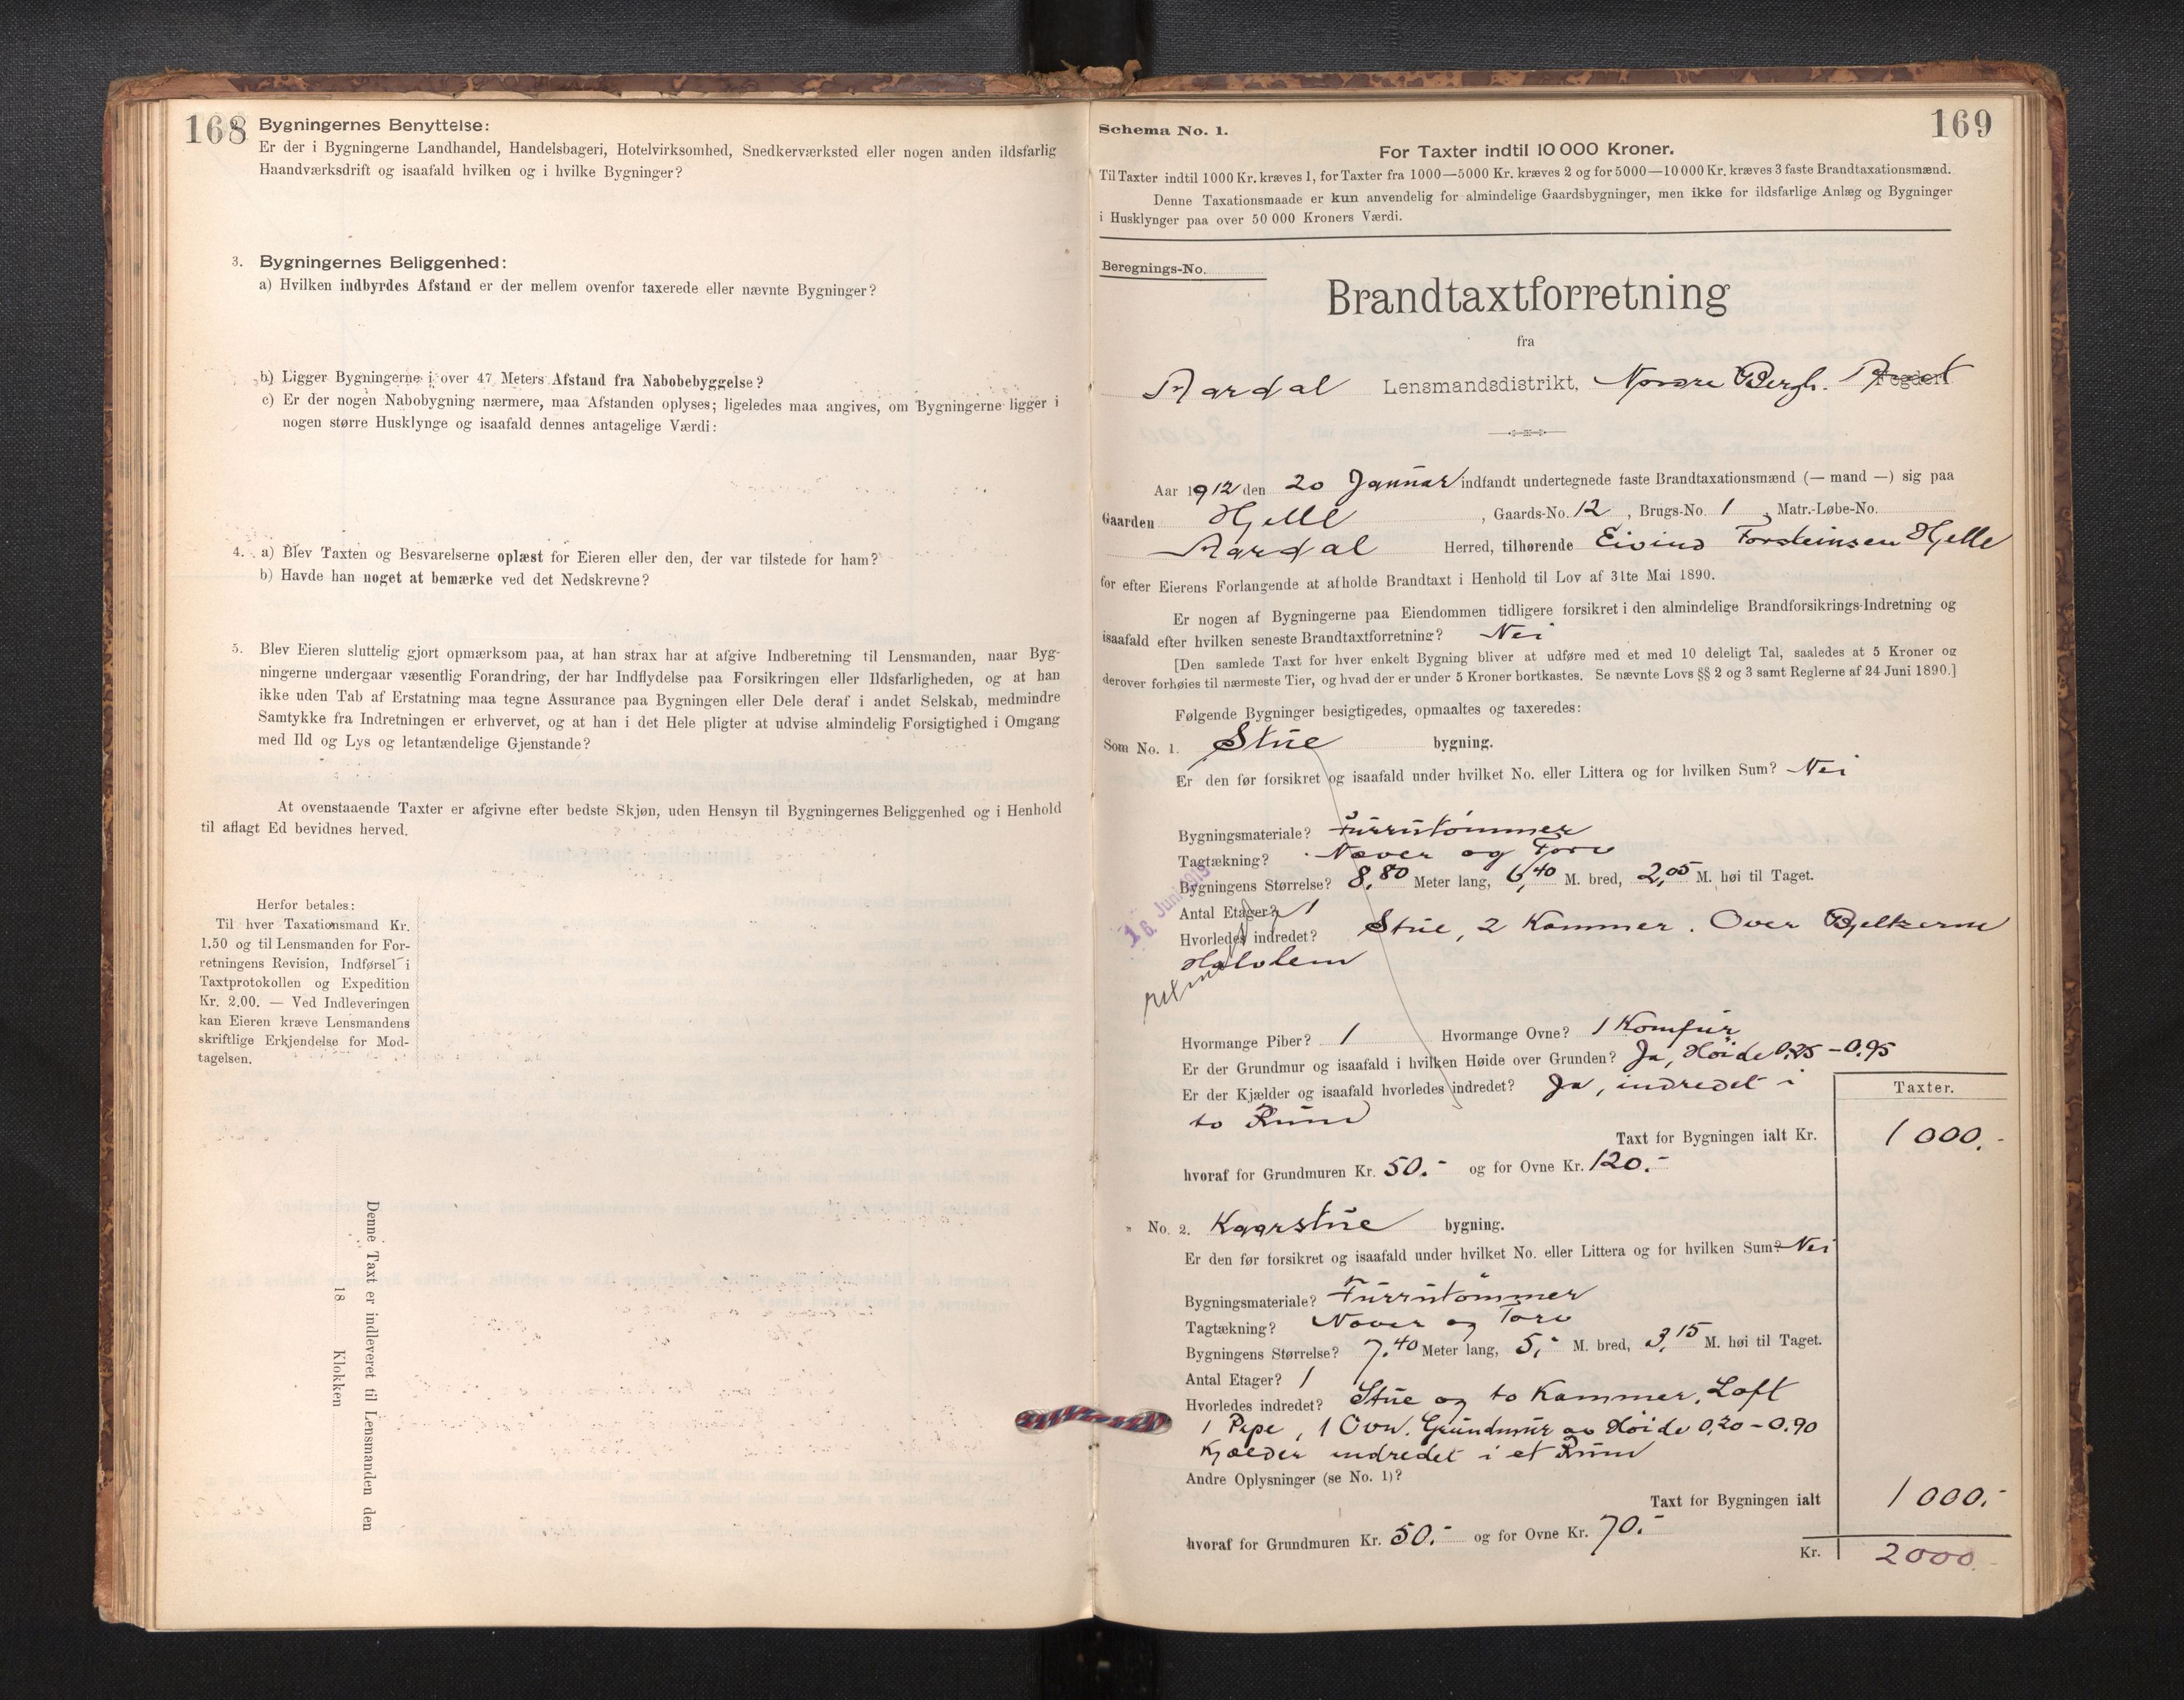 168
Bygningernes Benyttelse:
Er der i Bygningerne Landhandel, Handelsbageri, Hotelvirksomhed, Snedkerværksted eller nogen anden ildsfarlig
Haandværksdrift og isaafald hvilken og i hvilke Bygninger?
3. Bygningernes Beliggenhed:
a) Hvilken indbyrdes Afstand er der mellem ovenfor taxerede eller nævnte Bygninger?
b) Ligger Bygningerne i over 47 Meters Afstand fra Nabobebyggelse?
c) Er der nogen Nabobygning nærmere, maa Afstanden oplyses; ligeledes maa angives, om Bygningerne ligger i
nogen større Husklynge og isaafald dennes antagelige Værdi:
4. a) Blev Taxten og Besvarelserne oplæst for Eieren eller den, der var tilstede for ham?
b) Havde han noget at bemærke ved det Nedskrevne?
5. Blev Eieren sluttelig gjort opmærksom paa, at han strax har at afgive Indberetning til Lensmanden, naar Byg-
ningerne undergaar væsentlig Forandring, der har Indflydelse paa Forsikringen eller Ildsfarligheden, og at han
ikke uden Tab af Erstatning maa tegne Assurance paa Bygningen eller Dele deraf i andet Selskab, medmindre
Samtykke fra Indretningen er erhvervet, og at han i det Hele pligter at udvise almindelig Forsigtighed i Omgang
med Ild og Lys og letantændelige Gjenstande?
At ovenstaaende Taxter er afgivne efter bedste Skjøn, uden Hensyn til Bygningernes Beliggenhed og i Henhold
til aflagt Ed bevidnes herved.
Herfor betales:
Til hver Taxationsmand Kr.
1.50 og til Lensmanden for For-
retningens Revision, Indførsel i
Taxtprotokollen og Expedition
Kr. 2.00. — Ved Indleveringen
kan Eieren kræve Lensmandens
skriftlige Erkjendelse for Mod-
tagelsen.
Denne Taxt er indleveret til Lensmanden den
18 Klokken
169
Schema No. 1.
For Taxter indtil 10 000 Kroner.
Til Taxter indtil 1000 Kr. kræves 1, for Taxter fra 1000—5000 Kr. kræves 2 og for 5000—10 000 Kr. kræves 3 faste Brandtaxationsmænd.
Denne Taxationsmaade er kun anvendelig for almindelige Gaardsbygninger, men ikke for ildsfarlige Anlæg og Bygninger
i Husklynger paa over 50 000 Kroners Værdi.
Beregnings-No.
Brandtaxtforretning
fra
Aardal Lensmandsdistrikt, Nordre Bergh. Fogderi
Aar 1912 den 20 Januar indfandt undertegnede faste Brandtaxationsmænd (— mand —) sig paa
Gaarden Hjelle, Gaards-No. 12, Brugs-No. 1, Matr.-Løbe-No.
Aardal Herred, tilhørende Eivind Torsteinsen Hjelle
for efter Eierens Forlangende at afholde Brandtaxt i Henhold til Lov af 31te Mai 1890.
Er nogen af Bygningerne paa Eiendommen tidligere forsikret i den almindelige Brandforsikrings-Indretning og
isaafald efter hvilken seneste Brandtaxtforretning? Nei
[Den samlede Taxt for hver enkelt Bygning bliver at udføre med et med 10 deleligt Tal, saaledes at 5 Kroner og
derover forhøies til nærmeste Tier, og hvad der er under 5 Kroner bortkastes. Se nævnte Lovs §§ 2 og 3 samt Reglerne af 24 Juni 1890.]
Følgende Bygninger besigtigedes, opmaaltes og taxeredes:
Som No. 1. Stue bygning.
Er den før forsikret og isaafald under hvilket No. eller Littera og for hvilken Sum? Nei
Bygningsmateriale? Furrutømmer
Tagtækning? Næver og Torv
Bygningens Størrelse? 8,80 Meter lang, 6,40 M. bred, 2,05 M. høi til Taget.
Antal Etager? 1
Hvorledes indredet? Stue, 2 Kammer. Over Bjelkerne
Halvlem
Hvormange Piber? 1 Hvormange Ovne? 1 Komfur
Er der Grundmur og isaafald i hvilken Høide over Grunden? Ja, Høide 0,25 - 0,95
Er der Kjælder og isaafald hvorledes indredet? Ja, indredet i
to Rum
Taxter.
Taxt for Bygningen ialt Kr. 1000.-
hvoraf for Grundmuren Kr. 50.- og for Ovne Kr. 120.-
" No. 2. Kaarstue bygning.
Er den før forsikret og isaafald under hvilket No. eller Littera og for hvilken Sum? Nei
Bygningsmateriale? Furrutømmer
Tagtækning? Næver og Torv
Bygningens Størrelse? 7,40 Meter lang, 5,- M. bred, 3,15 M. høi til Taget.
Antal Etager? 1
Hvorledes indredet? Stue og to Kammer, Loft
1 Pipe, 1 Ovn. Grundmur av Høide 0,20 - 0.90
Kjælder indredet i et Rum
Andre Oplysninger (se No. 1)?
Taxt for Bygningen ialt 1000.-
hvoraf for Grundmuren Kr. 50.- og for Ovne Kr. 70.-
Kr. 2000.-